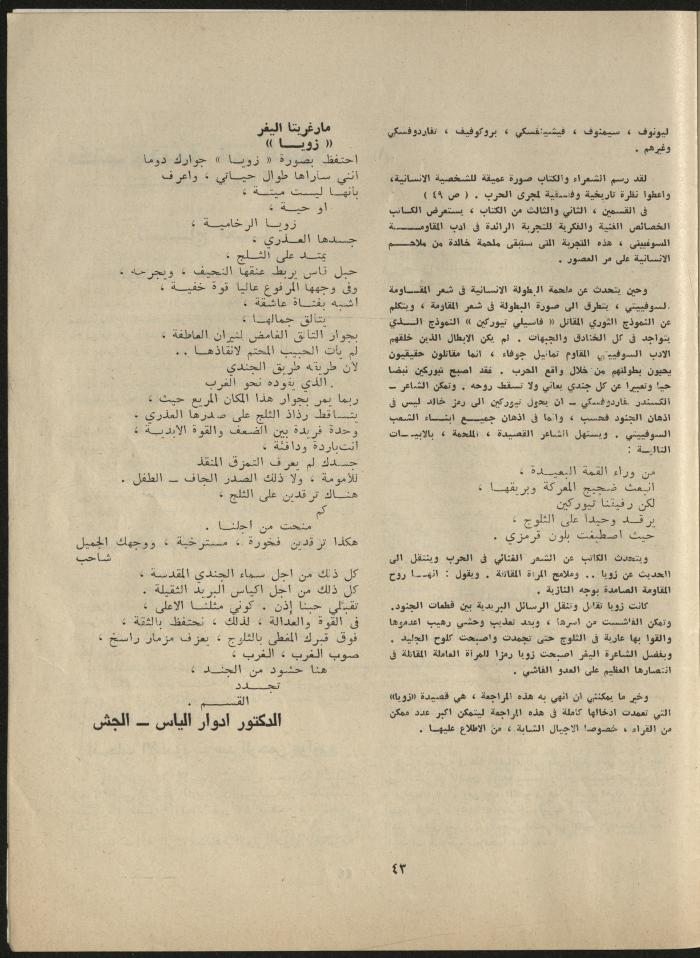 ليونوف ، سيمنوف ، فيشينفسكي ، بروكوفيف ، تفاردوفسكي
وغيرهم .
لقد رسم الشعراء والكتاب صورة عميقة للشخصية الانسانية،
واعطوا نظرة تاريخية وفلسفية لمجرى الحرب . ( ص ٤٩ )
فى القسمين ، الثاني والثالث من الكتاب ، يستعرض الكاتب
الخصائص الفنية والفكرية للتجربة الرائدة في ادب المقاومـــــة
السوفييتي ، هذه التجربة التى ستبقى ملحمة خالدة من ملاحـم
الانسانية على مر العصور .
وحين يتحدث عن ملحمة البطولة الانسانية في شعر المقـاومة
السوفييتي ، يتطرق الى صورة البطولة في شعر المقاومة ، ويتكلم
عن النموذج الثوري المقاتل « فاسيلي تيوركين » النموذج الـــذي
يتواجد في كل الخنادق والجبهات . لم يكن الابطال الذين خلقهم
الادب السوفييتي المقاوم تماثيل جوفاء ، انما مقاتلون حقيقيون
يحيون بطولتهم من خلال واقع الحرب . فقد اصبح تيوركين نبضا
حيا وتعبيرا عن كل جندي يعاني ولا تسقط روحه . وتمكن الشاعر ــ
الكسندر تفاردوفسكي ــ ان يحول تيوركين الى رمز خالد ليس فى
اذهان الجنود فحسب ، وانما فى اذهان جميـــع ابنــاء الشعب
السوفييتي . ويستهل الشاعر القصيدة ، الملحمة ، بالابيـــات
التاليـة :
من وراء القمة البعيــدة ،
انبعث ضجيج المعركة وبريقهـا ،
لكن رفيقنا تيوركين
يرقـد وحيدا على الثلوج ،
حيث اصطبغت بلون قرمزي .
ويتحدث الكاتب عن الشعر الغنائي في الحرب وينتقل الى
الحديث عن زويا .. وملامح المرأة المقاتلة . ويقول : انهـــا روح
المقاومة الصامدة بوجه النازية .
كانت زويا تقاتل وتنقل الرسائل البريدية بين قطعات الجنود.
وتمكن الفاشست من اسرها ، وبعد تعذيب وحشي رهيب اعدموها
والقوا بها عارية في الثلوج حتى تجمدت واصبحت كلوح الجليد .
وبفضل الشاعرة اليفر اصبحت زويا رمزا للمرأة العاملة المقاتلة فى
انتصارها العظيم على العدو الفاشي .
وخير ما يمكنني ان انهي به هذه المراجعة ، هي قصيدة «زويا»
التي تعمدت ادخالها كاملة في هذه المراجعة ليتمكن اكبر عدد ممكن
من القراء ، خصوصا الاجيال الشابة ، من الاطلاع عليهـا .
مارغريتا اليفر
« زويـــا »
احتفظ بصورة « زويــا » جوارك دوما
انني ساراها طوال حيـاتي ، واعرف
بأنهـا ليست ميتـة ،
او حيـة ،
زويــا الرخاميـة ،
جسدها العـذري ،
يمتـد على الثـلج ،
حبل قاس يربط عنقها النحيف ، ويجرحـه ،
وفى وجههـا المرفوع عاليا قوة خفيـة ،
اشبه بفتـاة عاشقة ،
يتألق جمالهـا ،
بجوار التألق الغامض لنيران العاطفة ،
لم يأت الحبيب المحتم لانقاذهـا ..
لان طريقه طريق الجندي
الذي يقوده نحو الغرب .
ربما يمر بجوار هذا المكان المريع حيث ،
يتساقط رذاذ الثلج على صدرها العذري .
وحدة فريدة بين الضعف والقوة الابديـة ،
انت باردة ودافئة ،
جسدك لم يعرف التمزق المنقذ
للأمومة ، ولا ذلك الصدر الجاف ــ الطفل .
هنـاك ترقدين على الثلج ،
كم
منحت من اجلنـا .
هكذا ترقدين فخورة ، مسترخية ، ووجهك الجميل
شاحب
كل ذلك من اجل سماء الجندي المقدسة ،
كل ذلك من اجل اكياس البريد الثقيلة .
تقبلي حبنا إذن . كوني مثلنـا الاعلى ،
فى القوة والعدالة ، لذلك ، نحتفظ بالثقة ،
فوق قبرك المغطى بالثلوج ، يعزف مزمار راسخ ،
صوب الغرب ، الغرب ،
هنا حشود من الجنـد ،
تجـــدد
القســم .
الدكتور ادوار الياس ــ الجش
٤٣